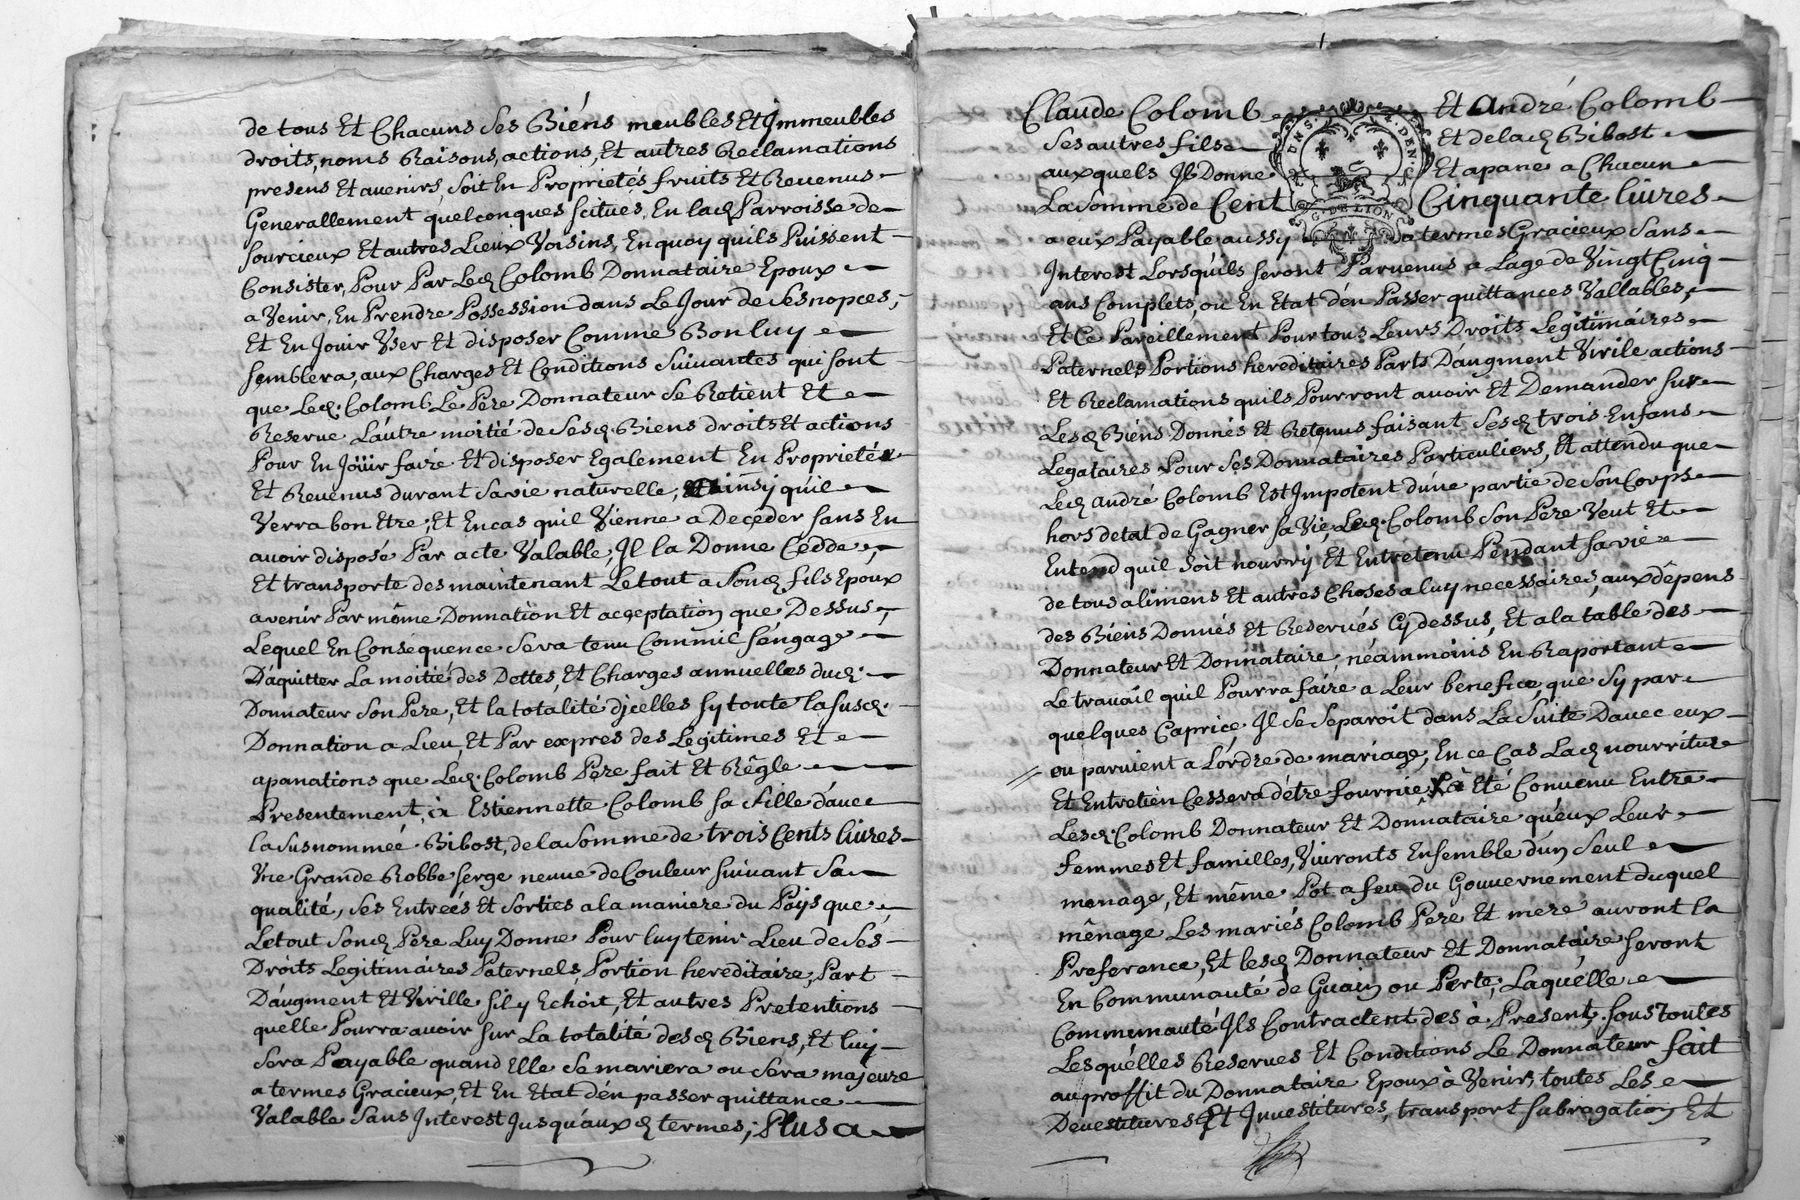 de tous Et Chacuns Ses Biéns meubles Et Jmmeubles
droits, noms Raisons, actions, Et autres Reclamations
presens Et avenirs, soit En Proprietés fruits Et Revenus
Generallement quelconques scitues, En lad Parroisse de
sourcieux Et autres Lieux Voisins, En quoy quils Puissent
Consister, Pour Par Led Colomb Donnataire Epoux
a Venir, En Prendre Possession dans Le Jour de Ses nopces,
Et En Jouir Vser Et disposer Comme Bon luy
semblera, aux Charges Et Conditions Suivantes qui sont
que Led. Colomb Le Pére Donnateur Se Retient Et
Reserve L'autre moitié de Sesd. Biens droits Et actions
Pour En Joüir faire Et disposer Egalement En Proprietés
Et Revenus durant Sa vie naturelle, Et ainsy quil
Verra bon Etre; Et En cas quil Vienne a Deceder sans En
avoir disposé Par acte Valable, Jl la Donne Cédde,
Et transporte des maintenant Le tout a Sond fils Epoux
avenir Par même Donnation Et acceptation que Dessus,
Lequel En Conséquence Sera tenu Comm'il s'engage
D'aquitter La moitié des Dettes, Et Charges annuelles dud.
Donnateur Son Pere, Et la totalité d'jcelles sy toute la susd.
Donnation a Lieu, Et Par expres des Légitimes Et
apanations que Led. Colomb Pére fait Et Régle
Presentement, à Estiennette Colomb sa fille d'avec
la Susnommée Bibost, de la Somme de trois Cents livres
Vne Grande Robbe serge neuve de Couleur suivant Sa
qualité, Ses Entreés Et Sorties a la maniere du Païs que
Le tout Sond Pére Luy Donne Pour luy tenir Lieu de Ses
Droits Legitimaires Paternels, Portion hereditaire, Part
D'augment Et Virille sil y Echoit, Et autres Pretentions
quelle Pourra avoir sur La totalité desd Biens, Et luy
sera Payable quand Elle Se mariera ou Sera majeure
a termes Gracieux, Et En Etat d'en passer quittance
Valable Sans Interest Jusqu'aux d termes; Plus a
Claude Colomb Et andré Colomb
Ses autres fils Et de lad Bibost
auxquels Jl Donne Et apane a Chacun
La Somme de Cent Cinquante livres
a eux Payable aussy a termes Gracieux Sans
Interest Lorsqu'ils seront Parvenus a Lage de Vingt Cinq
ans Complets, ou En Etat d'en Passer quittances Vallables,
Et Ce Pareillement Pour tous Leurs Droits Legitimaires
Paternels Portions hereditaires Parts D'augment Virile actions
Et Reclamations quils Pourront avoir Et Demander sur
Lesd Biéns Donnés Et Retenus faisant Sesd trois Enfans
Legataires Pour Ses Donnataires Particuliers, Et attendu que
Led andré Colomb Est Impotent d'une partie de Son Corps
hors detat de Gagner sa Vie, Led. Colomb Son Pére Veut Et
Entend quil Soit nourry Et Entretenu Pendant sa vie
de tous alimens Et autres Choses a luy necessaires, aux dépens
des Biéns Donnés Et Reservés Cy dessus, Et a la table des
Donnateur Et Donnataire, néammoins En Raportant
Le travail quil Pourra faire a Leur benefice, que Sy par
quelques Caprice Jl Se Separoit dans La Suite D'avec eux
ou parvient a L'ordre de mariage, En ce Cas Lad nourriture
Et Entretien Cessera d'être fournie, à Eté Convenu Entre
Lesd. Colomb Donnateur Et Donnataire qu'eux Leur
femmes Et familles, Vivronts Ensemble d'un Seul
menage, Et même Pot a feu du Gouvernement duquel
ménage Les mariés Colomb Pere Et mére auront la
Preference, Et lesd Donnateur Et Donnataire seront
En Communauté de Guain ou Perte, Laquélle
Communauté Jls Contractent dès à Présent, sous toutes
Lesquélles Reserves Et Conditions Le Donnateur fait
au proffit du Donnataire Epoux à Venir, toutes Les
Devestitures Et Jnvestitures, transport subrogation Et
G. DE LION